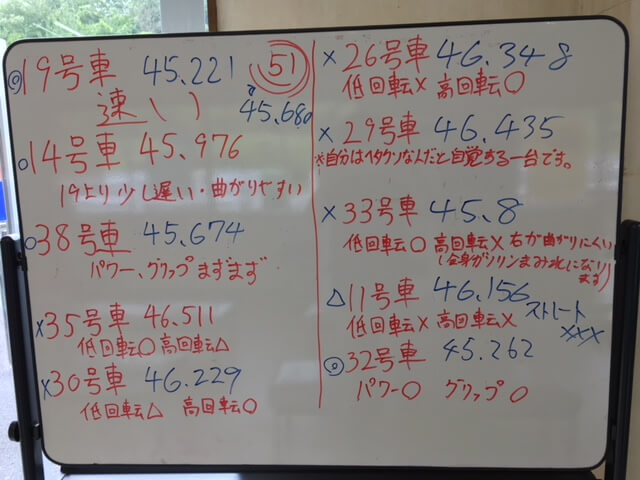 ◎19号車 45.221 51
速い! 45.680
○14号車 45.976
19より少し遅い・曲がりやすい
○38号車 45.674
パワー、グリップまずまず
×35号車 46.511
低回転○ 高回転△
×30号車 46.229
低回転△ 高回転○
×26号車 46.348
低回転× 高回転○
×29号車 46.435
※自分はヘタクソなんだと自覚する一台です。
×33号車 45.8
低回転○ 高回転× 右が曲がりにくい
(全身がソリンまみれになります)
△11号車 46.156 ストレート
低回転× 高回転× ×××
◎32号車 45.262
パワー○ グリップ○